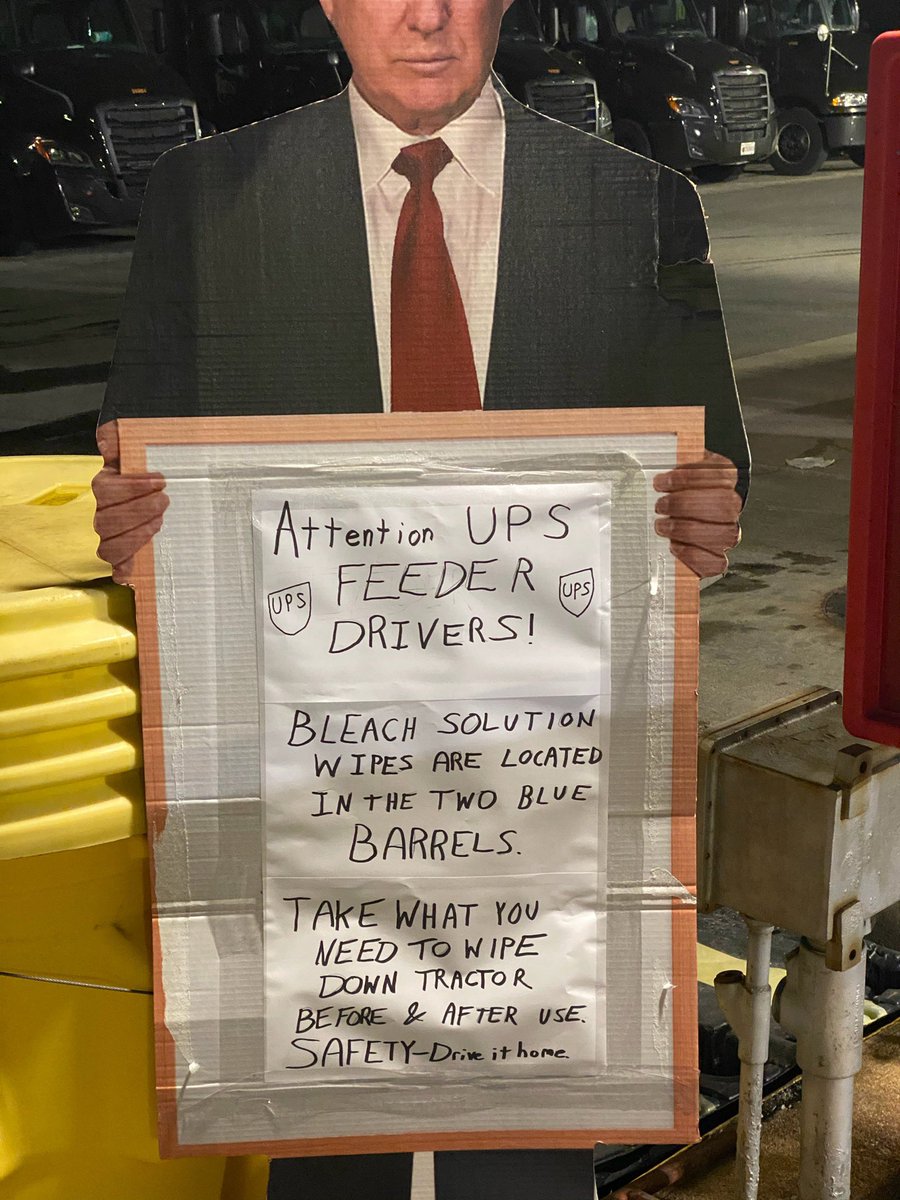 Attention UPS
UPS FEEDER UPS
DRIVERS!
BLEACH SOLUTION
WIPES ARE LOCATED
IN THE TWO BLUE
BARRELS.
TAKE WHAT YOU
NEED TO WIPE
DOWN TRACTOR
BEFORE & AFTER USE.
SAFETY-Drive it home.